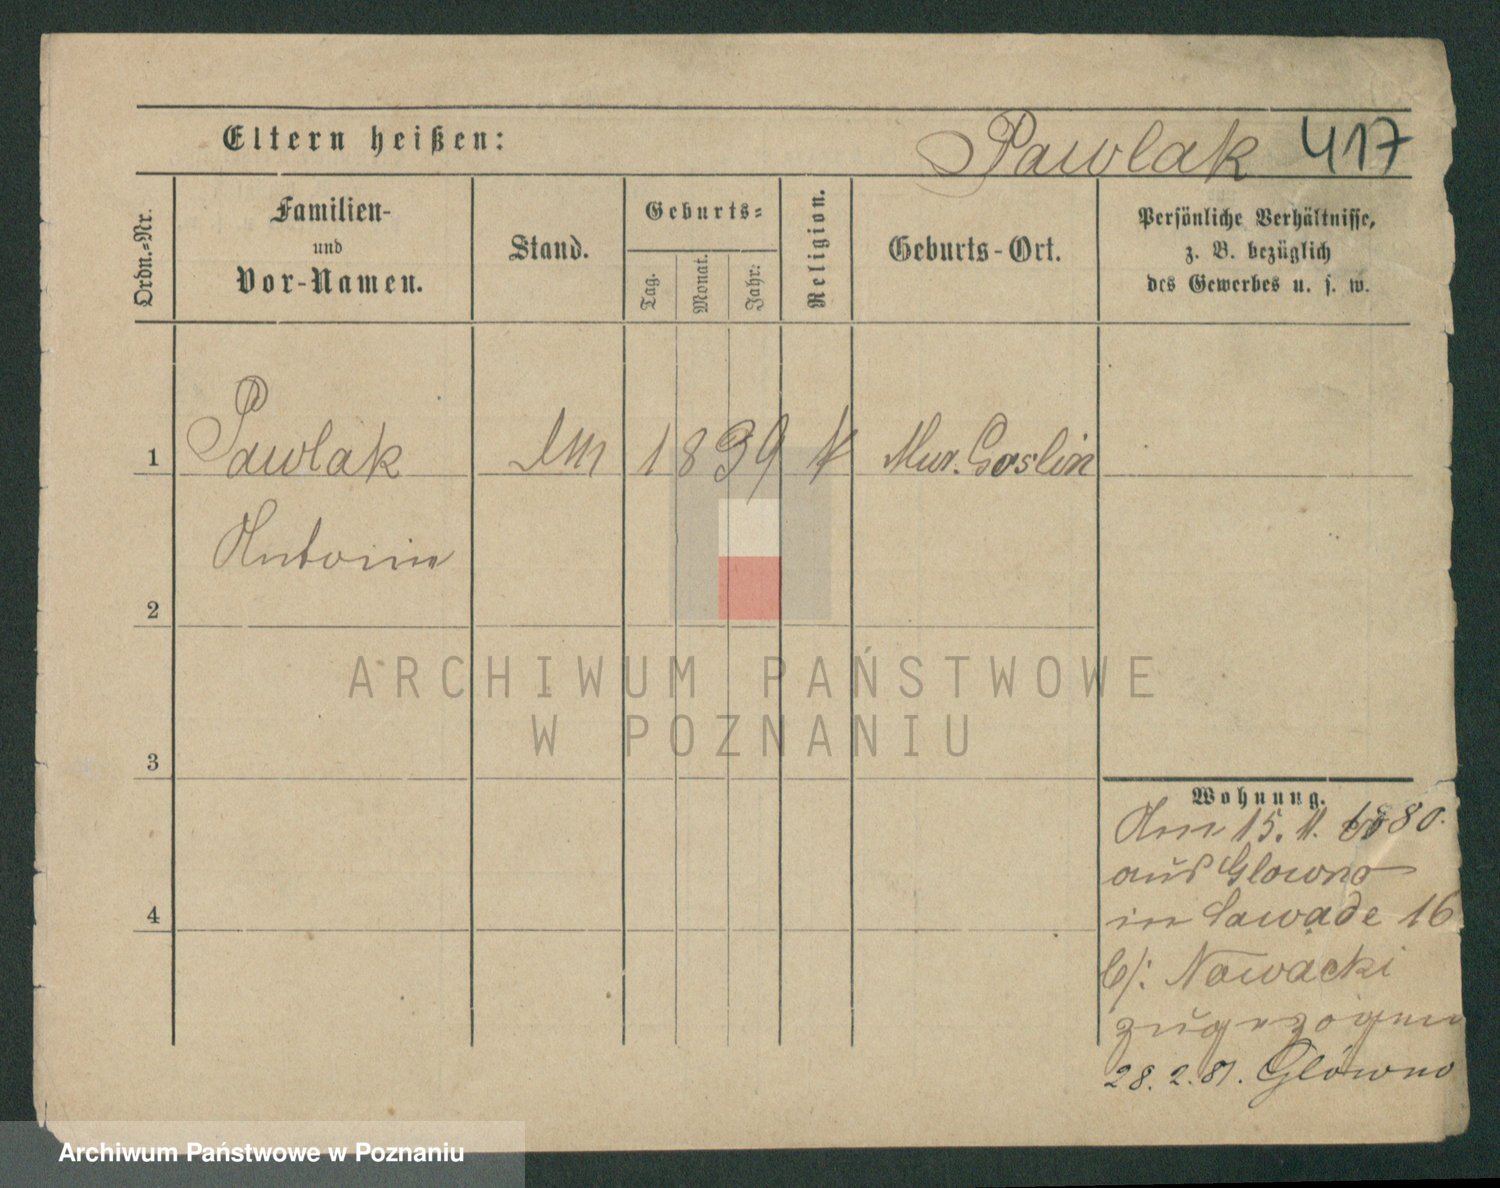 Eltern heißen:
Pawlak 417
Ordn.=Nr.
Familien-
und
Vor-Namen.
Stand.
Geburts=
Tag.
Monat.
Jahr.
Religion.
Geburts-Ort.
Persönliche Verhältnisse,
z. B. bezüglich
des Gewerbes u. s. w.
1 Pawlak 1839 K Mur. Goslin
Antonie
2
3
4
Wohnung.
Am 15. 11. 1880.
aus Glowno
in Zawade 16
b/: Nowacki
zugezogen
28. 2. 81. Glówno
ARCHIWUM PAŃSTWOWE
W POZNANIU
Archiwum Państwowe w Poznaniu